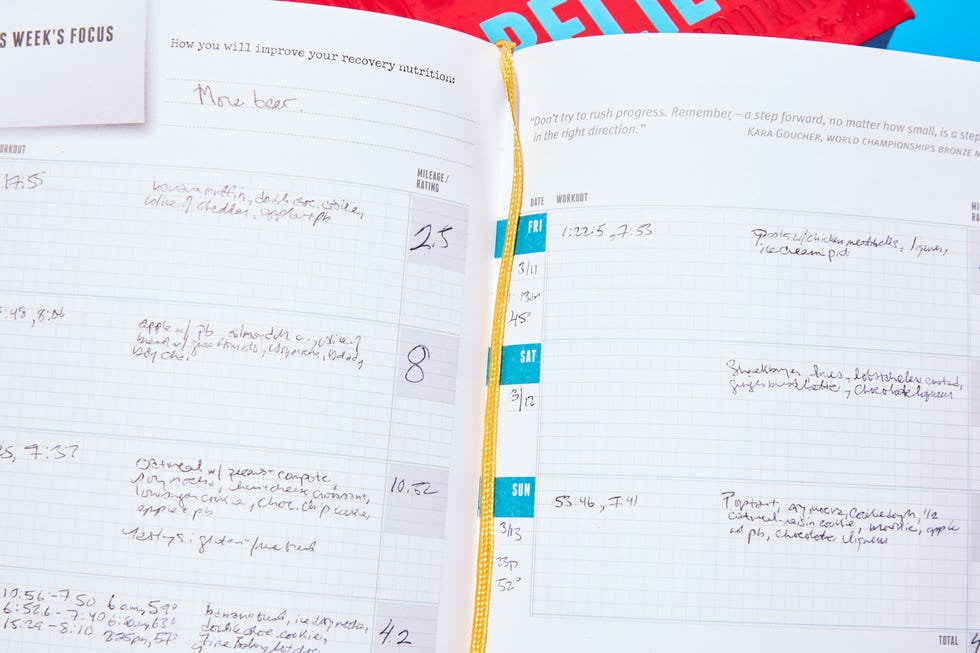 RELIE
S WEEK'S FOCUS
How you will improve your recovery nutrition:
More beer.
ORKOUT
MILEAGE /
RATING
17:55
banana muffin, double choc. cookie,
slice of cheddar, apple + pb
2.5
:48, 8:06
apple w/ pb,
bread w/
8
25, 7:37
oatmeal w/ compote,
soy mocha, ham + cheese croissant,
cookie, choc. chip cookie,
apple + pb
10.52
gluten-free
10:56-7:50 6am, 59°
6:52.6-7:40 6:20am 63°
15:29-8:10 825pm, 57°
banana bread, iced soy mocha,
double choc. cookies,
4.2
"Don't try to rush progress. Remember—a step forward, no matter how small, is a step
in the right direction."
KARA GOUCHER, WORLD CHAMPIONSHIPS BRONZE M
DATE
WORKOUT
MI
RA
FRI
3/11
45°
1:22.5, 7:53
Pasta w/ chicken meatballs, liqueur,
ice cream pie
SAT
3/12
fries, lobster
gingerbread latte, chocolate liqueur
SUN
3/13
23p
52°
53:46, 7:41
Poptart, soy mocha, cookie dough, 1/2
oatmeal-raisin cookie, apple
w/ pb, chocolate liqueur
TOTAL
4